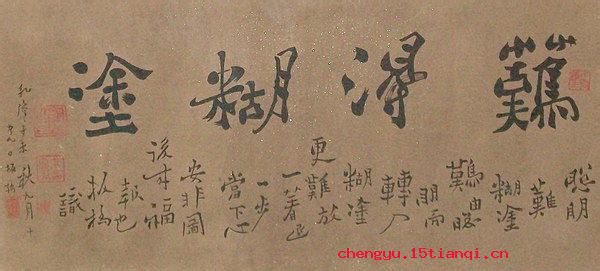 難得糊塗
聰明
難
糊塗
難由聰
明而
轉入
糊塗
更難放
一著退
一步
當下心
安非圖
後來福
報也
板橋
識
乾隆辛未秋九月十
有九日板橋
chengyu.15tianqi.cn